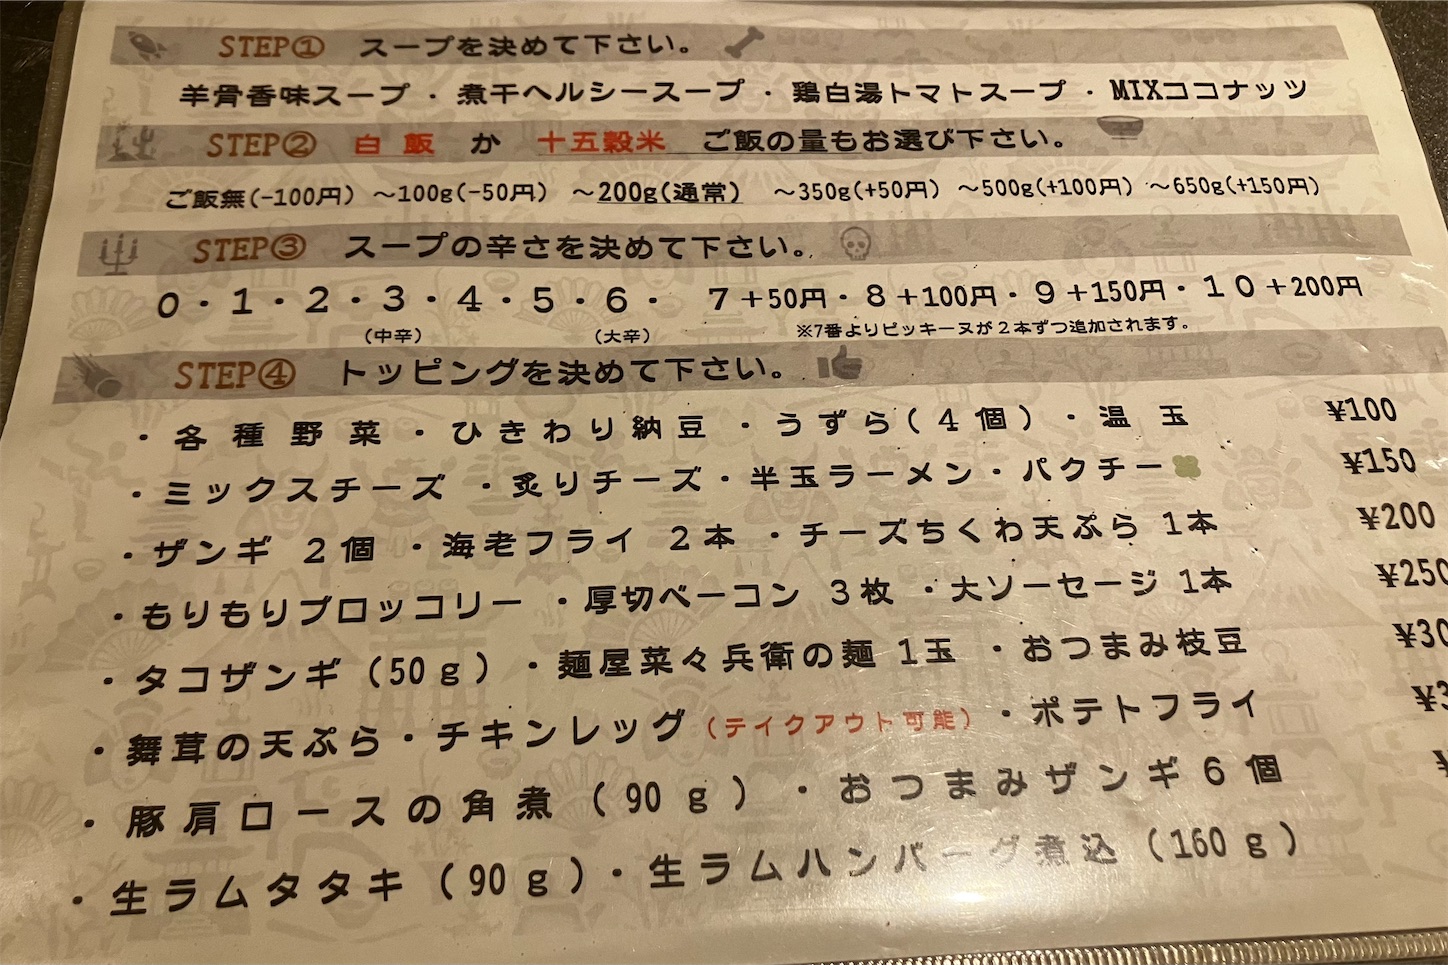 STEP① スープを決めて下さい。
羊骨香味スープ・煮干ヘルシースープ・鶏白湯トマトスープ・MIXココナッツ
STEP② 白飯 か 十五穀米 ご飯の量もお選び下さい。
ご飯無(-100円) ～100g(-50円) ～200g(通常) ～350g(+50円) ～500g(+100円) ～650g(+150円)
STEP③ スープの辛さを決めて下さい。
0・1・2・3・4・5・6・ 7+50円・8+100円・9+150円・10+200円
(中辛) (大辛) ※7番よりピッキーヌが2本ずつ追加されます。
STEP④ トッピングを決めて下さい。
・各種野菜・ひきわり納豆・うずら(4個)・温玉 ¥100
・ミックスチーズ・炙りチーズ・半玉ラーメン・パクチー ¥150
・ザンギ 2個・海老フライ 2本・チーズちくわ天ぷら 1本 ¥200
・もりもりブロッコリー・厚切ベーコン 3枚・大ソーセージ 1本 ¥250
・タコザンギ(50g)・麺屋菜々兵衛の麺 1玉・おつまみ枝豆 ¥30
・舞茸の天ぷら・チキンレッグ(テイクアウト可能)・ポテトフライ ¥3
・豚肩ロースの角煮(90g)・おつまみザンギ6個 ¥
・生ラムタタキ(90g)・生ラムハンバーグ煮込(160g)